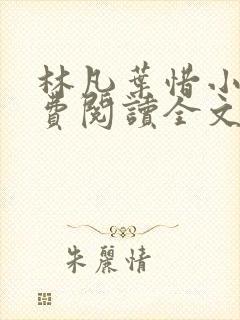 林凡葉惜小
費閱讀全文
朱麗情